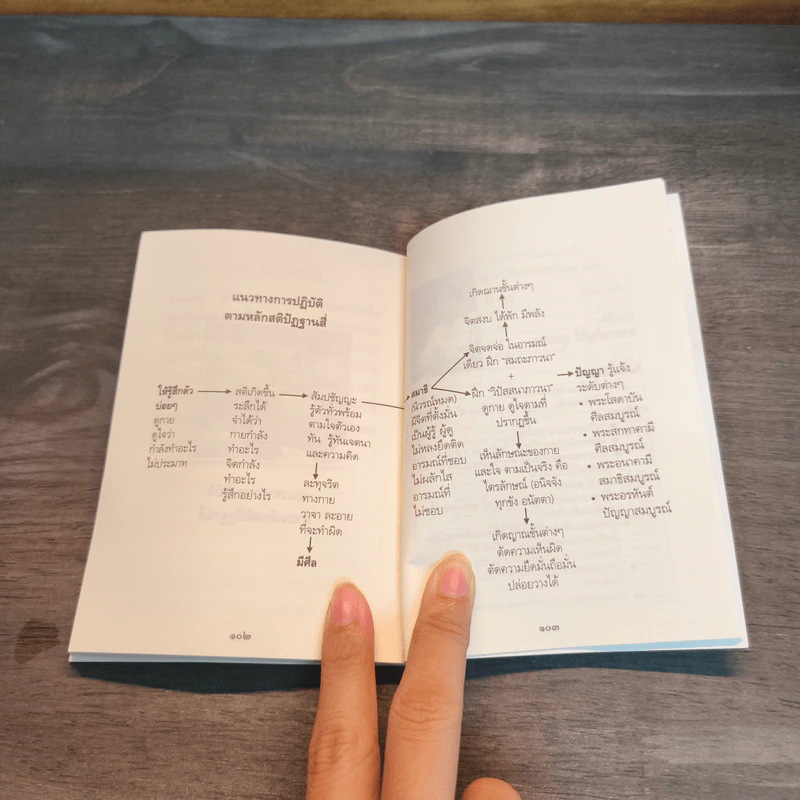 แนวทางการปฏิบัติ
ตามหลักสติปัฏฐานสี่
ให้รู้สึกตัว
บ่อยๆ
ดูกาย
ดูใจว่า
กำลังทำอะไร
ไม่ประมาท
สติเกิดขึ้น
ระลึกได้
จำได้ว่า
กายกำลัง
ทำอะไร
จิตกำลัง
ทำอะไร
รู้สึกอย่างไร
สัมปชัญญะ
รู้ตัวทั่วพร้อม
ตามใจตัวเอง
ทัน รู้ทันเจตนา
และความคิด
ละทุจริต
ทางกาย
วาจา ละอาย
ที่จะทำผิด
มีศีล
๑๐๒
สมาธิ
(นิวรณ์หมด)
มีจิตที่ตั้งมั่น
เป็นผู้รู้ ผู้ดู
ไม่หลงยึดติด
อารมณ์ที่ชอบ
ไม่ผลักไส
อารมณ์ที่
ไม่ชอบ
เกิดฌานขั้นต่างๆ
จิตสงบ ได้พัก มีพลัง
จิตจดจ่อ ในอารมณ์
เดียว ฝึก "สมถะภาวนา"
+
ฝึก "วิปัสสนาภาวนา"
ดูกาย ดูใจตามที่
ปรากฏขึ้น
เห็นลักษณะของกาย
และใจ ตามเป็นจริง คือ
ไตรลักษณ์ (อนิจจัง
ทุกขัง อนัตตา)
เกิดญาณขั้นต่างๆ
ตัดความเห็นผิด
ตัดความยึดมั่นถือมั่น
ปล่อยวางได้
ปัญญา รู้แจ้ง
ระดับต่างๆ
• พระโสดาบัน
ศีลสมบูรณ์
• พระสกทาคามี
ศีลสมบูรณ์
• พระอนาคามี
สมาธิสมบูรณ์
• พระอรหันต์
ปัญญาสมบูรณ์
๑๐๓